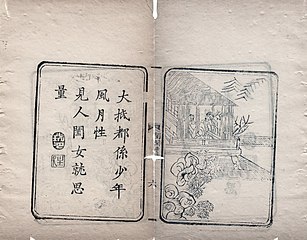 大抵都係少年
風月性
見人閨女就思
量
六